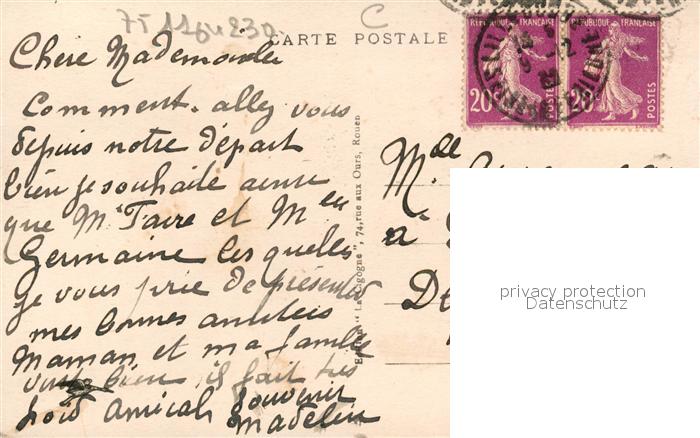 75 11gu 23D
C
CARTE POSTALE
REPUBLIQUE FRANÇAISE
REPUBLIQUE FRANÇAISE
20 POSTES
20 POSTES
Chère Mademoiselle
Comment. allez vous
depuis notre départ
bien je souhaite ainsi
que Mr Favre et Mlle
Germaine les quelles
je vous prie de présenter
mes bonnes amitiés
Maman et ma famille
vont bien, il fait très
froid amical souvenir
Madelein
Edition "La Cigogne", 74, rue aux Ours, Rouen
Mlle
a
De
privacy protection
Datenschutz